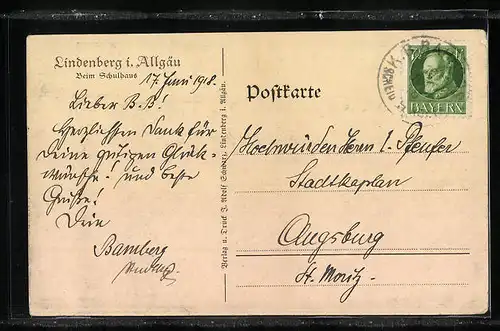 Lindenberg i. Allgäu
Beim Schulhaus
17. Juni 1918.
Lieber B. B.!
Herzlichsten Dank für
Deine gütigen Glück-
wünsche und beste
Grüße!
Dein
Bamberg
Verlag u. Druck J. Adolf Schwarz, Lindenberg i. Allgäu.
Postkarte
BAYERN
Hochwürden Herrn L. Pfeufer
Stadtkaplan
Augsburg
St. Moritz.